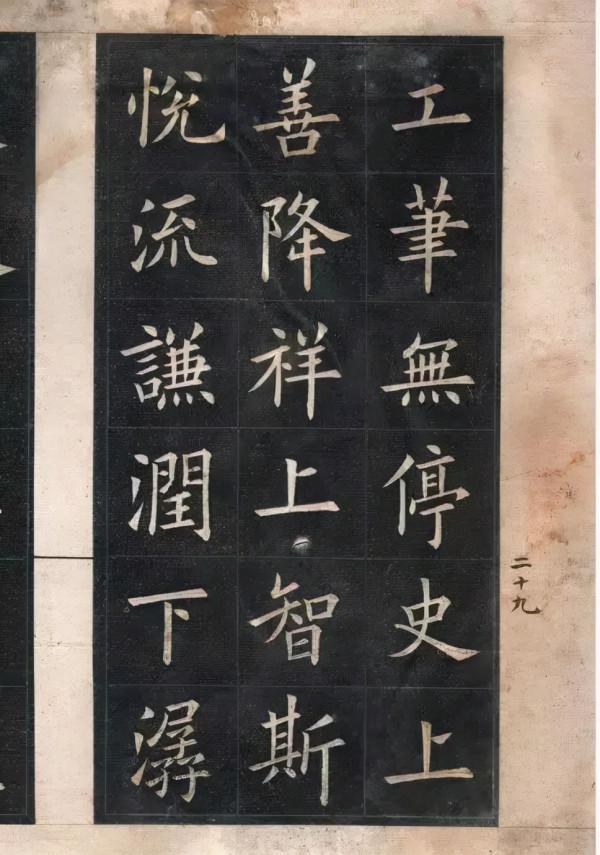 二十九
工筆無停史上
善降祥上智斯
悅流謙潤下潺